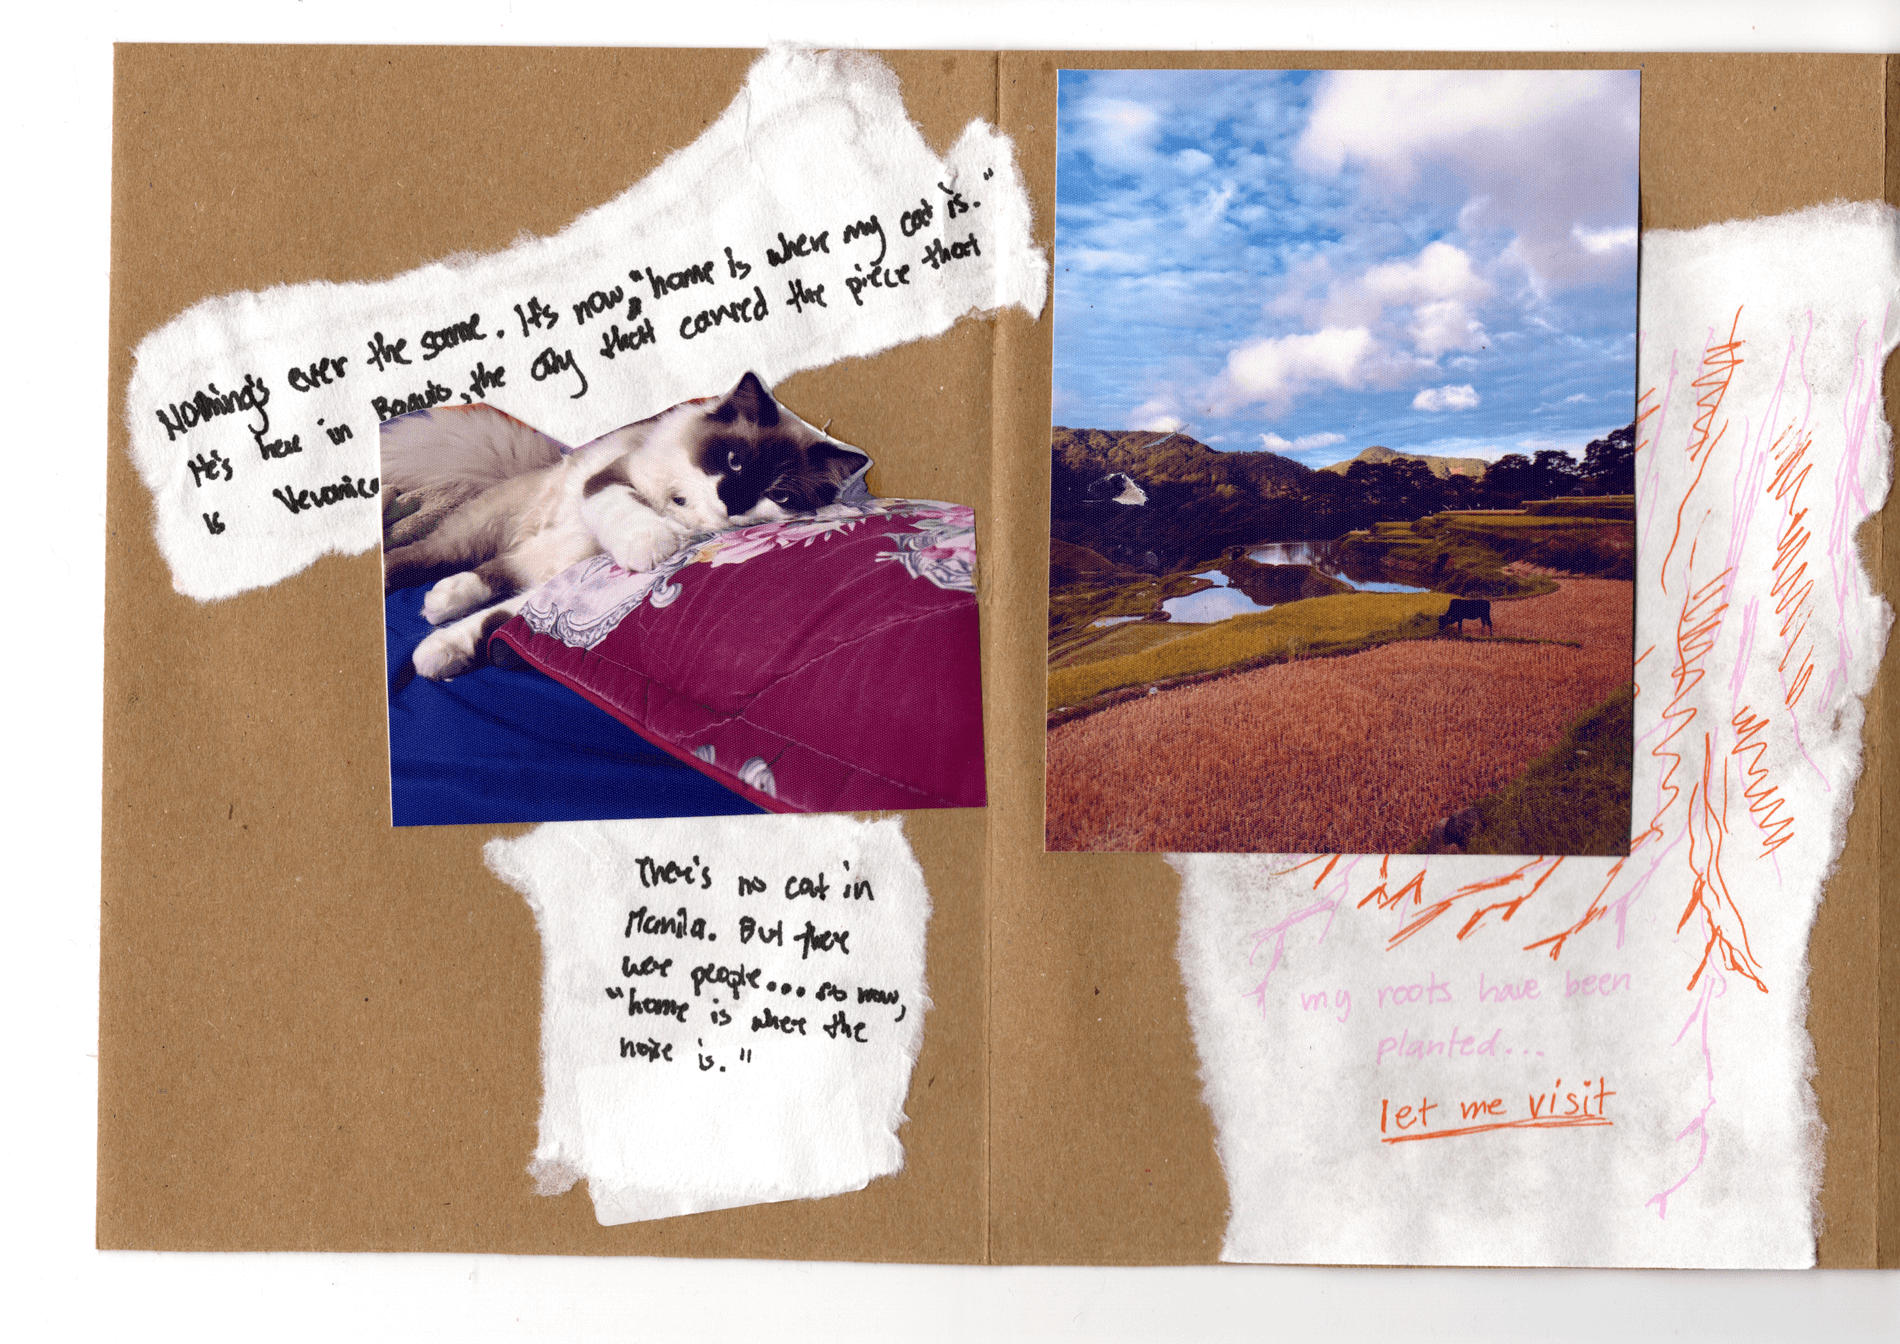 Nothing's ever the same. It's now, "home is where my cat is."
He's here in Baguio, the city that carved the piece that
is Veronica
There's no cat in
Manila. But there
were people... so now,
"home is where the
noise is."
my roots have been
planted...
let me visit